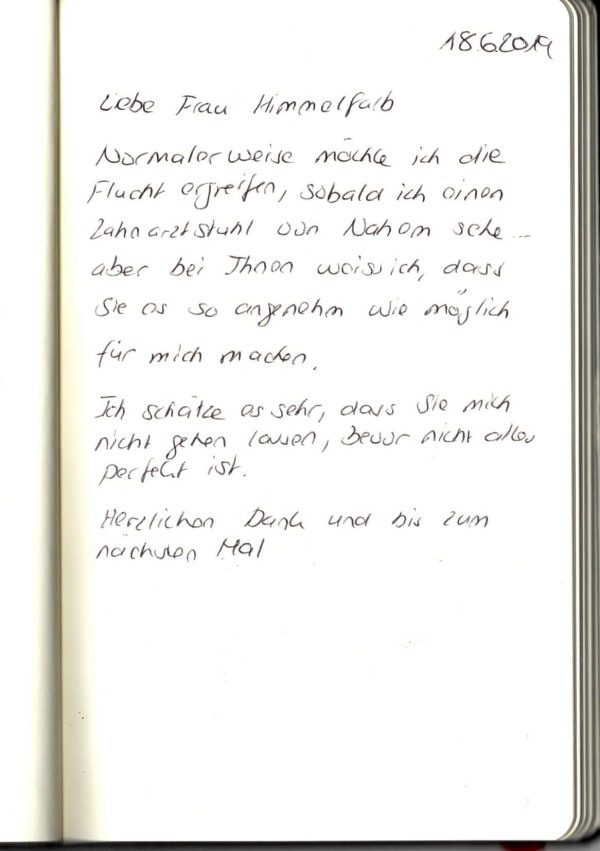 18.6.2019
Liebe Frau Himmelfarb
Normalerweise möchte ich die
Flucht ergreifen, sobald ich einen
Zahnarztstuhl von Nahem sehe...
aber bei Ihnen weiss ich, dass
Sie es so angenehm wie möglich
für mich machen.
Ich schätze es sehr, dass Sie mich
nicht gehen lassen, bevor nicht alles
perfekt ist.
Herzlichen Dank und bis zum
nächsten Mal